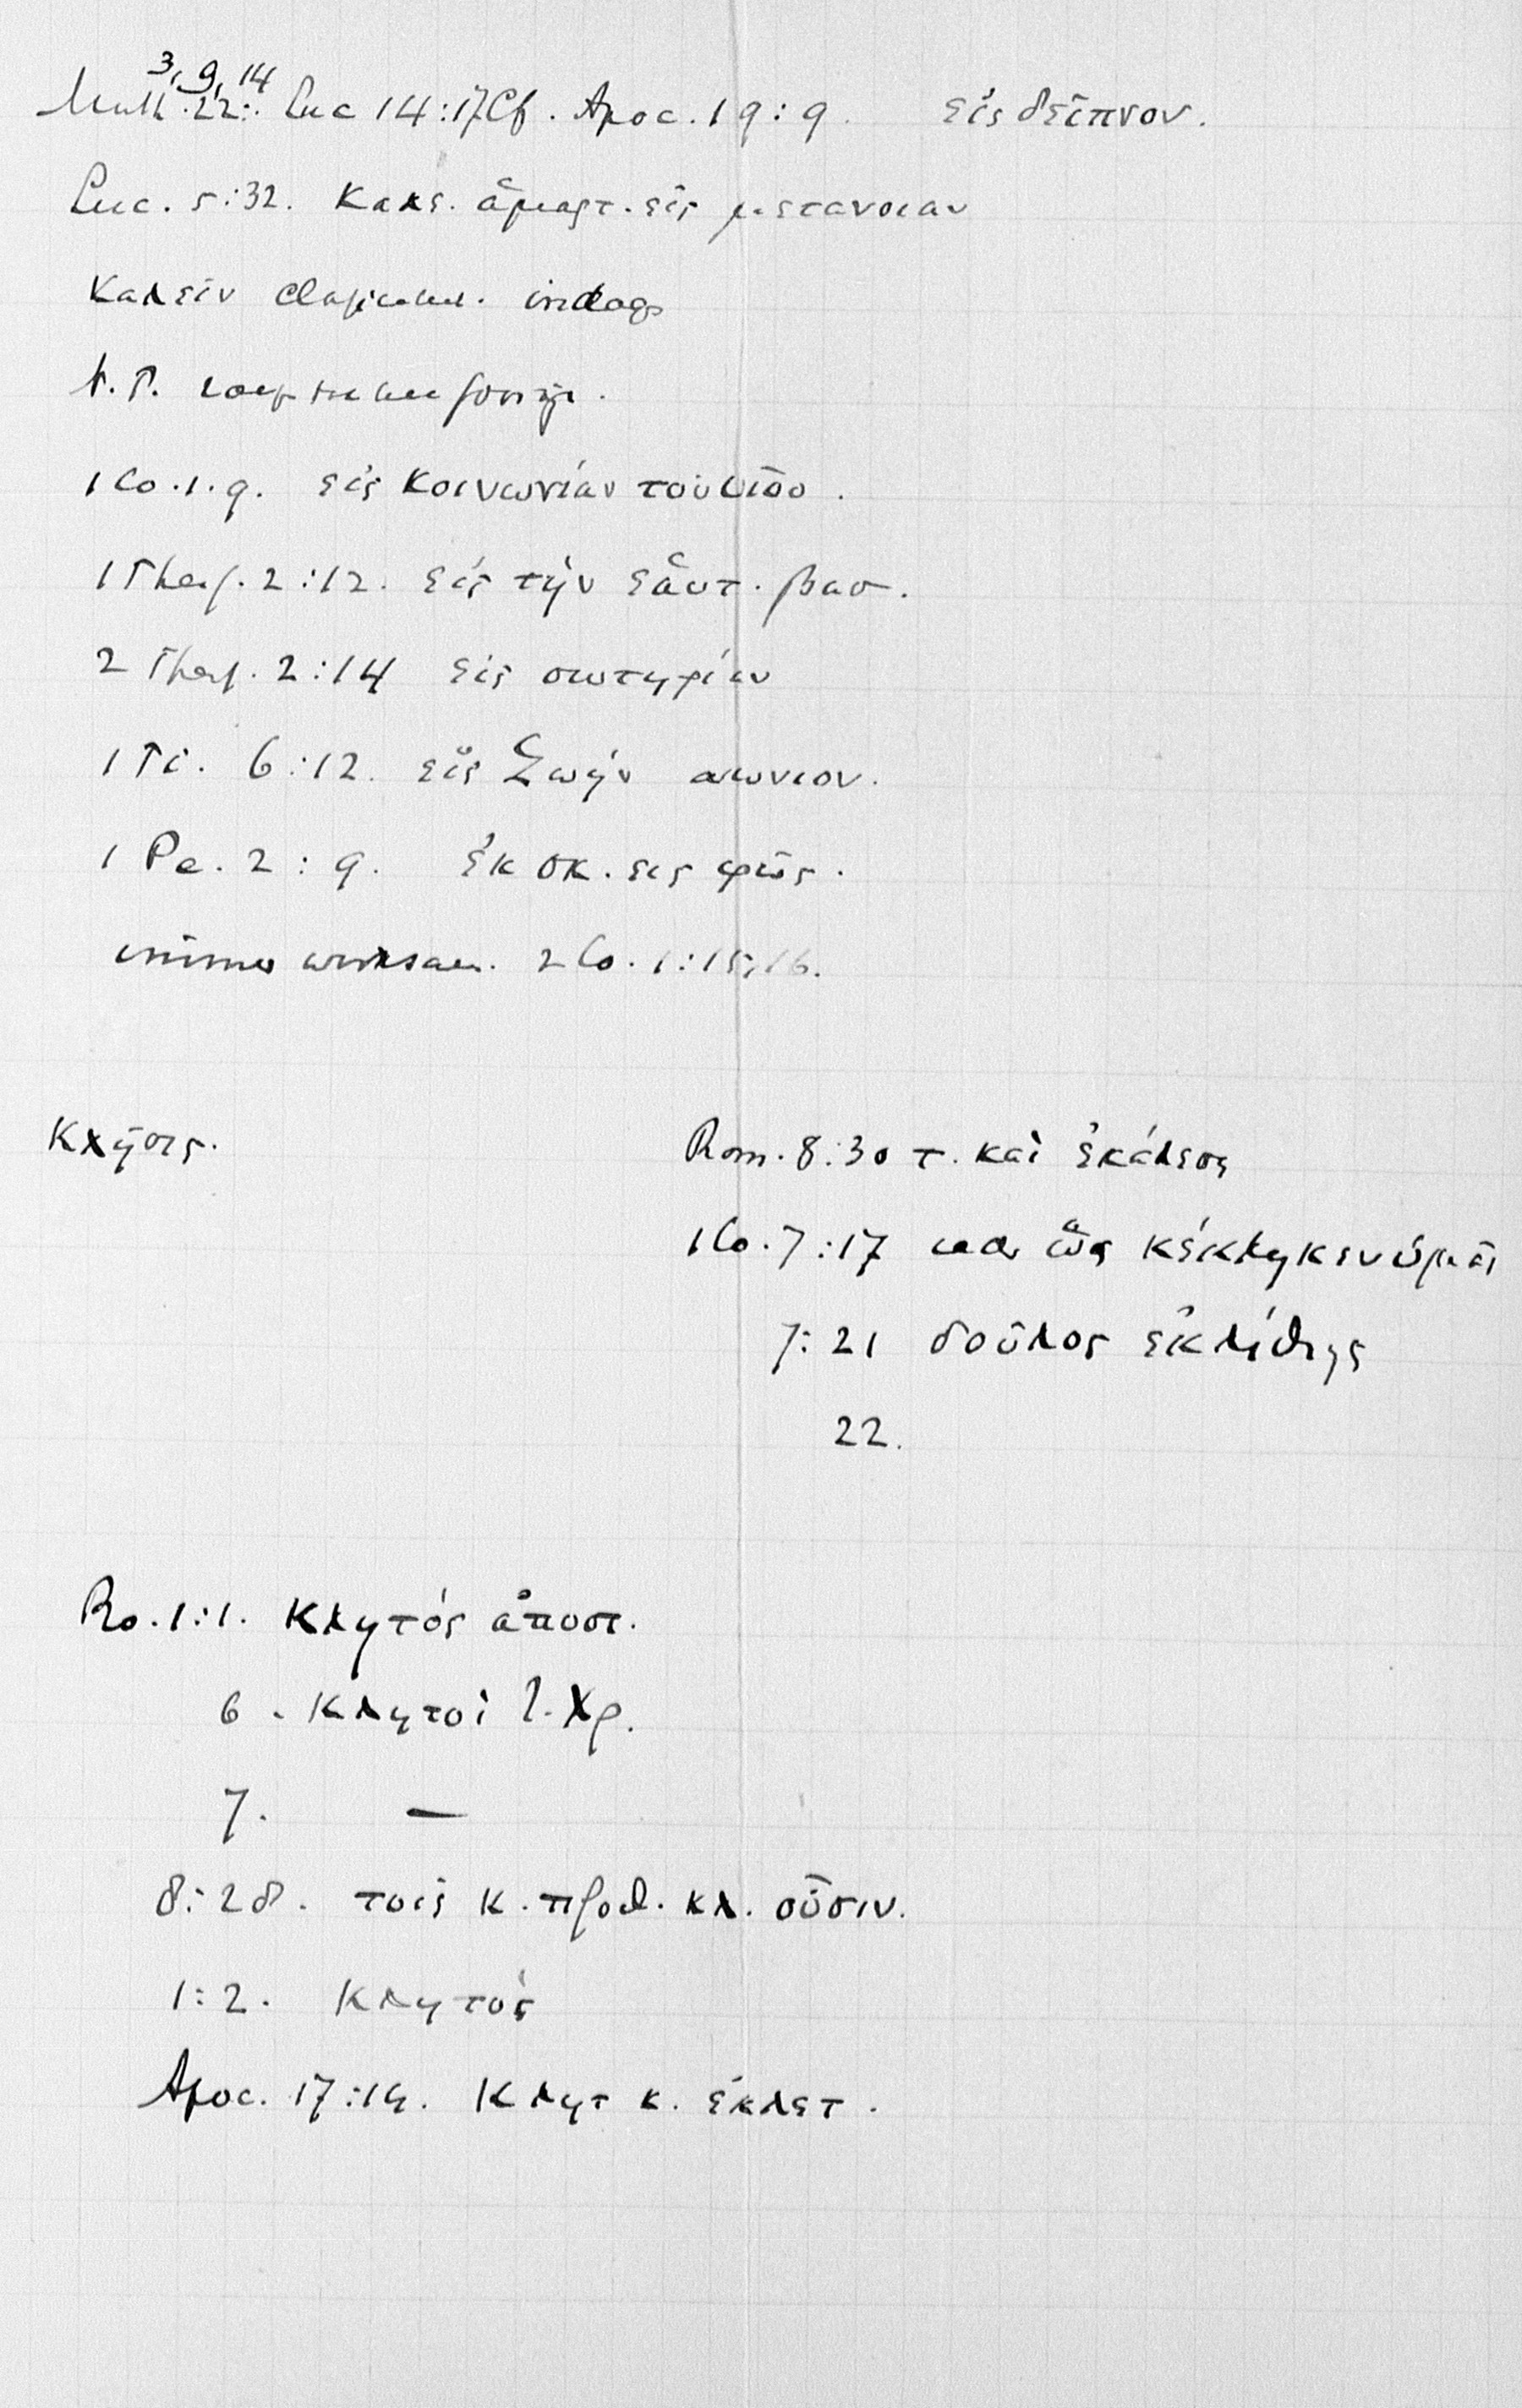 3, 9, 14
Matth. 22:. Luc 14:17 Cf. Apoc. 19:9. εἰς δεῖπνον.
Luc. 5:32. καλε. ἁμαρτ. εἰς μετανοιαν
καλεῖν
N.T.
1 Co. 1.9. εἰς κοινωνίαν τοῦ υἱοῦ.
1 Thess. 2:12. εἰς τὴν ἑαυτ. βασ.
2 Thess. 2:14 εἰς σωτηρίαν
1 Ti. 6:12. εἰς ζωὴν αιωνιον.
1 Pe. 2:9. ἐκ σκ. εις φῶς.
2 Co. 1:15,16.
κλῆσις.
Rom. 8:30 τ. καὶ ἐκάλεσε
1 Co. 7:17 ὡς κέκληκεν ὑμᾶς
7:21 δοῦλος ἐκλήθης
22.
Ro. 1:1. κλητός ἀποστ.
6. κλητοὶ Ἰ. Χρ.
7. —
8:28. τοῖς κ. προθ. κλ. οὖσιν.
1:2. κλητοῖς
Apoc. 17:14. κλητ κ. ἐκλετ.